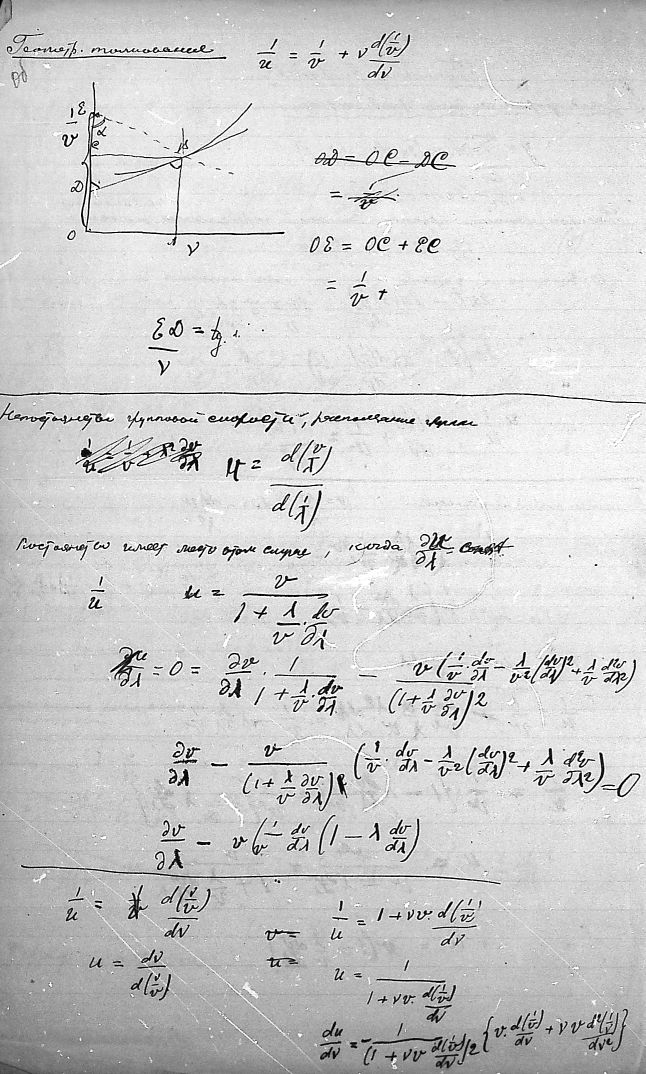 Геометр. толкование
1/u = 1/v + ν d(1/v)/dν
1/v
E
α
C
B
D
O
A
ν
OD = OC - DC
= 1/v
OE = OC + EC
= 1/v +
ED/ν = tg
Непостоянство групповой скорости,
u = d(v/λ)/d(1/λ)
Постоянство имеет место в том случае, когда ∂u/∂λ = const
1/u u = v/(1 + λ/v · dv/∂λ)
∂u/∂λ = 0 = ∂v/∂λ · 1/(1 + λ/v · dv/∂λ) - v(1/v · dv/∂λ - λ/v² (dv/dλ)² + λ/v d²v/dλ²)/(1 + λ/v ∂v/∂λ)²
∂v/∂λ - v/(1 + λ/v ∂v/∂λ) (1/v · dv/dλ - λ/v² (dv/dλ)² + λ/v d²v/∂λ²) = 0
∂v/∂λ - v(1/v dv/dλ (1 - λ dv/dλ)
1/u = d(ν/v)/dν
v =
1/u = 1 + νv · d(1/v)/dν
u = dν/d(ν/v)
u =
u = 1/(1 + νv · d(1/v)/dν)
du/dν = - 1/(1 + νv d(1/v)/dν)² {v · d(1/v)/dν + νv d²(1/v)/dν²}